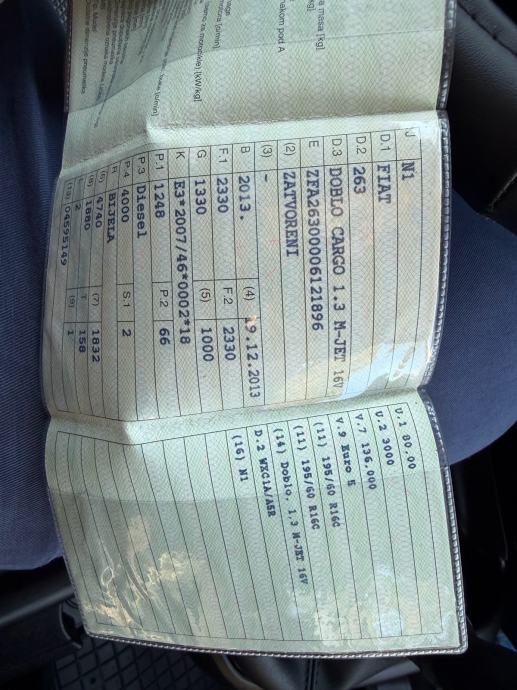 a masa [kg]
kg]
nakom pod A
naga
J N1
D.1 FIAT
D.2 263
D.3 DOBLO CARGO 1.3 M-JET 16V
E ZFA26300006121896
(2) ZATVORENI
(3) -
B 2013. (4) 19.12.2013
F.1 2330 F.2 2330
G 1330 (5) 1000
K E3*2007/46*0002*18
P.1 1248 P.2 66
P.3 Diesel
P.4 4000 S.1 2
R BIJELA
(6) 4740 (7) 1832
(8) 1880 T 158
L 2 (9) 1
(10) 04595149
U.1 80.00
U.2 3000
V.7 136.000
V.9 Euro 5
(11) 195/60 R16C
(11) 195/60 R16C
(14) Doblo, 1.3 M-JET 16V
D.2 WXC1A/A5R
(16) N1